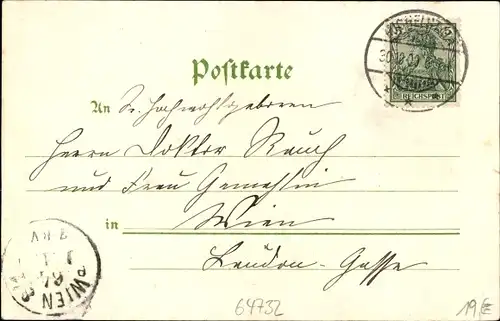 REICHSPOST
Postkarte
An Sr. Hochwohlgeboren
Herrn Doktor Rauch
und Frau Gemahlin
in Wien
London-Gasse
WIEN
64732
19,€